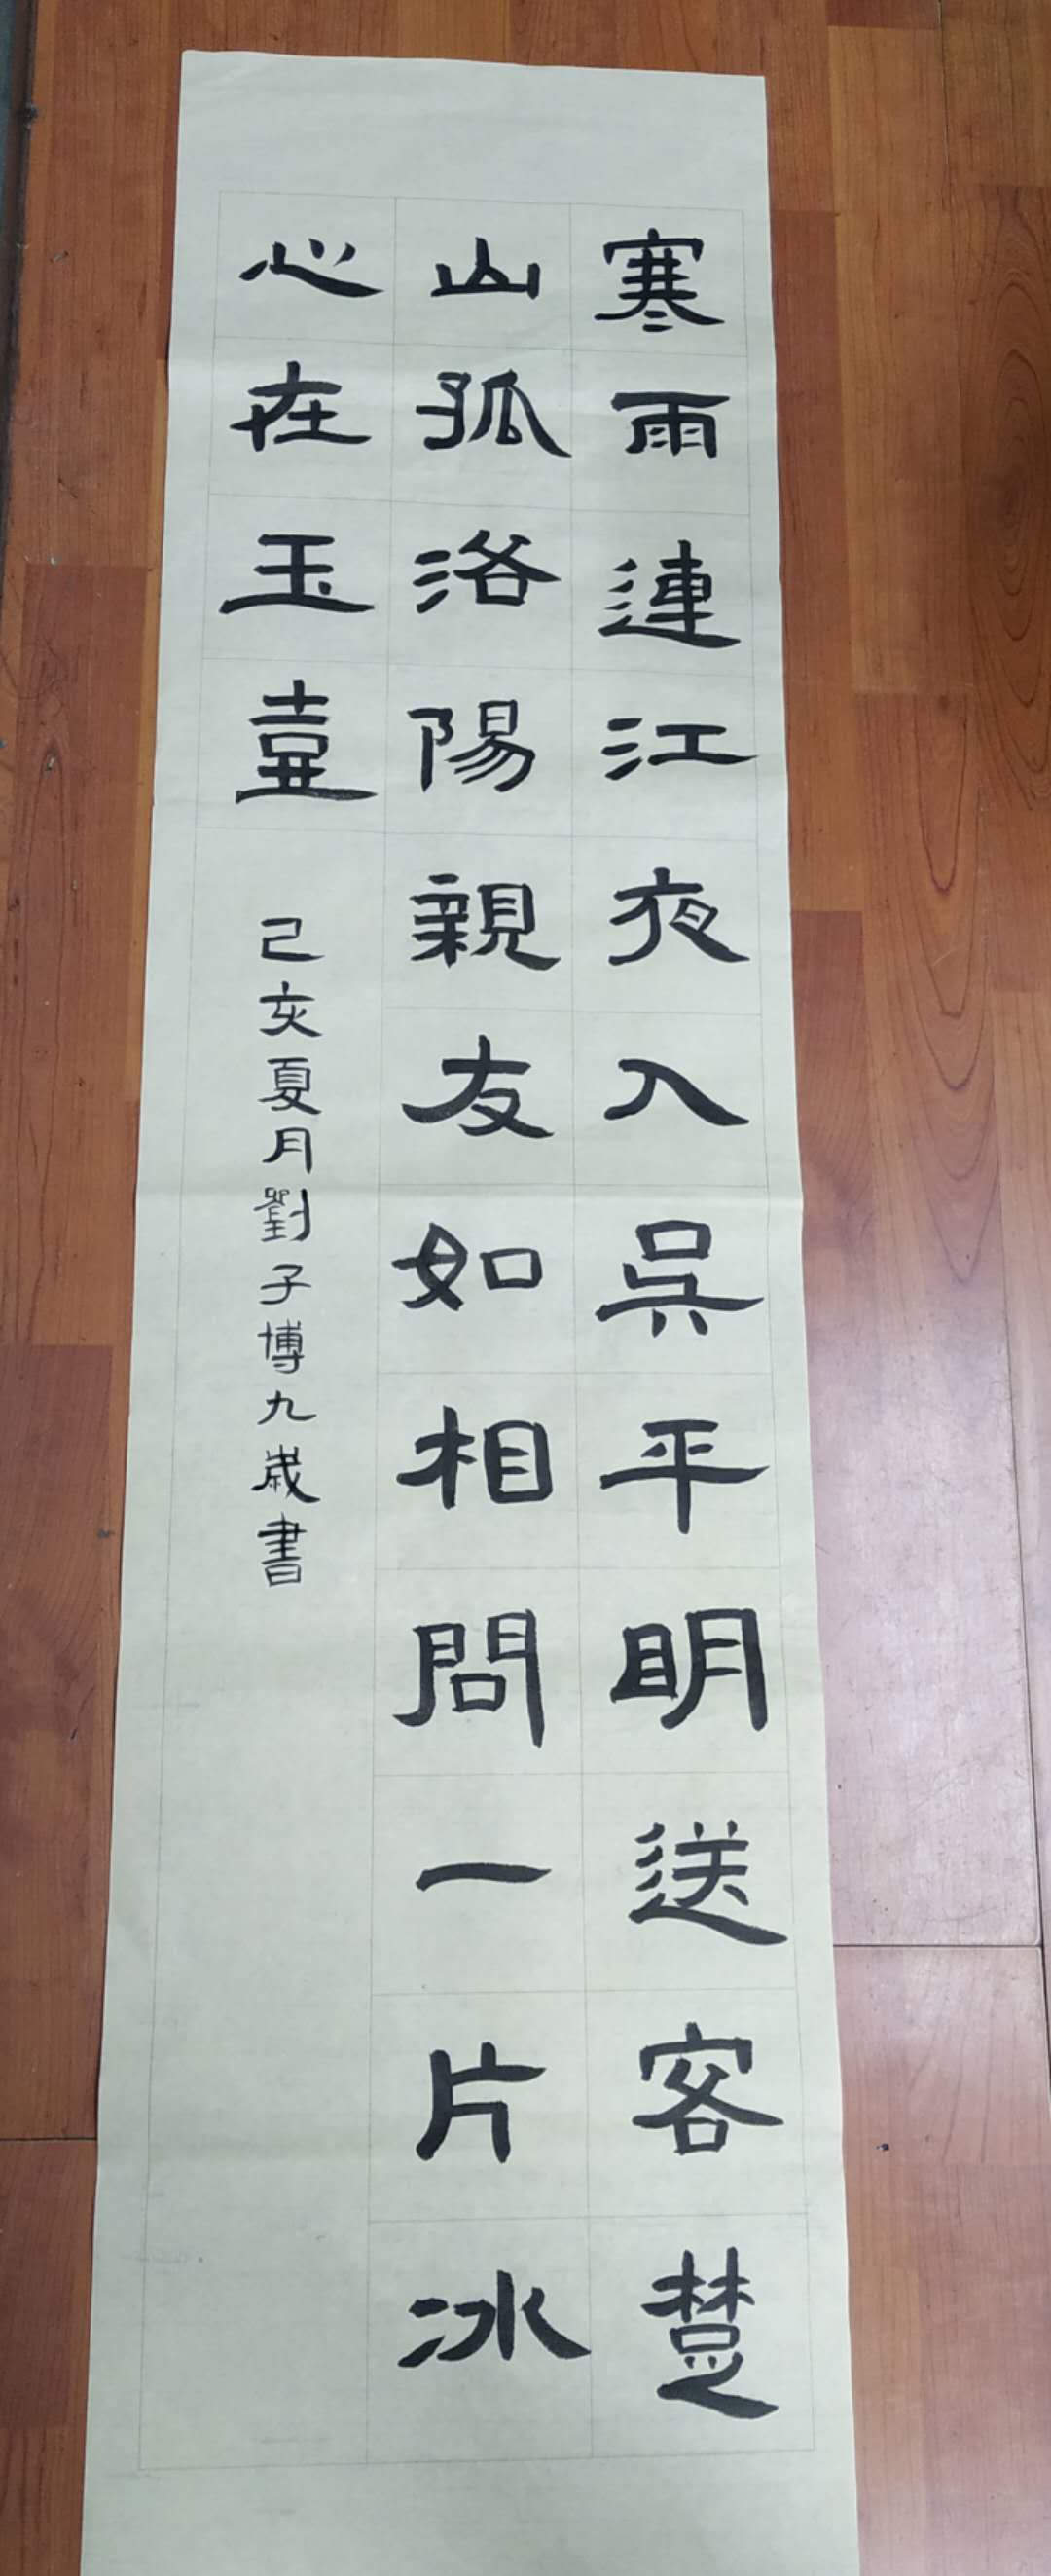 寒雨連江夜入吳平明送客楚
山孤洛陽親友如相問一片冰
心在玉壺
己亥夏月劉子博九歲書